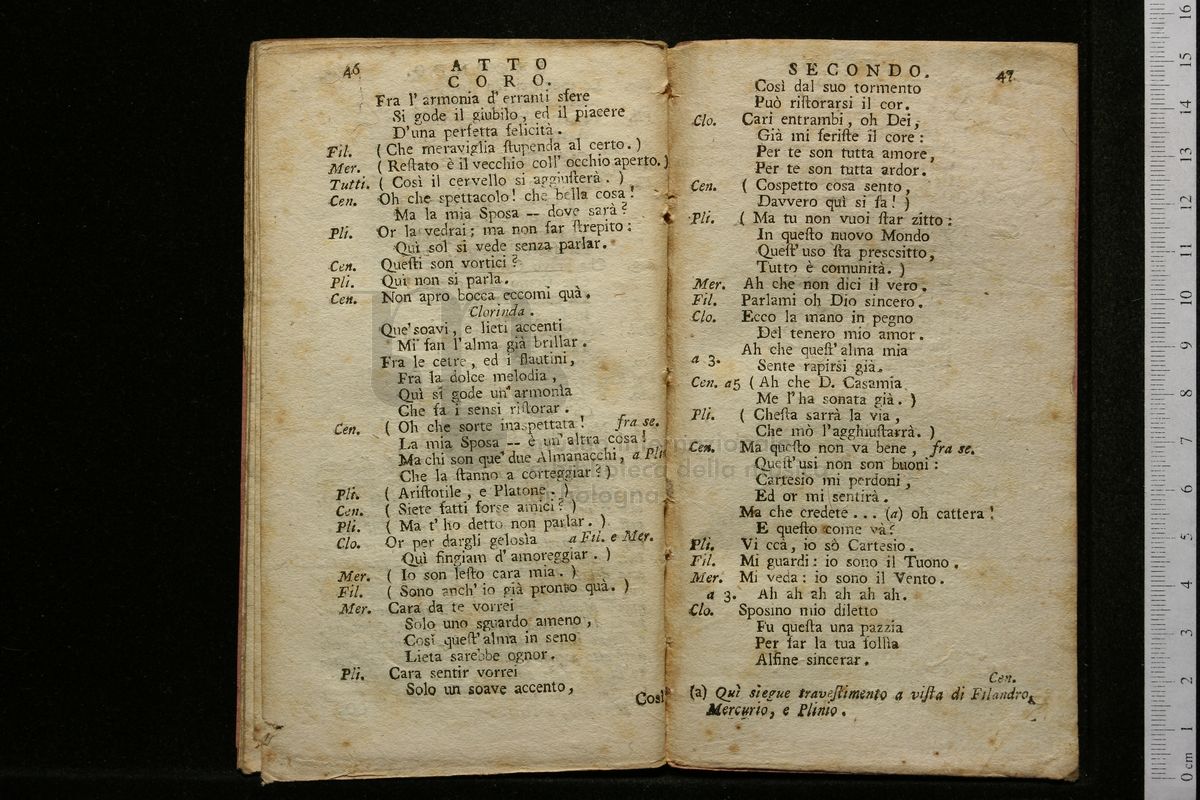 46
ATTO
CORO.
Fra l' armonia d' erranti sfere
Si gode il giubilo, ed il piacere
D'una perfetta felicità.
Fil. ( Che meraviglia ſtupenda al certo. )
Mer. ( Reſtato è il vecchio coll' occhio aperto. )
Tutti. ( Così il cervello si aggiuſterà. )
Cen. Oh che spettacolo! che bella cosa!
Ma la mia Sposa -- dove sarà?
Pli. Or la vedrai; ma non far ſtrepito:
Quì sol si vede senza parlar.
Cen. Queſti son vortici?
Pli. Quì non si parla.
Cen. Non apro bocca eccomi quà.
Clorinda.
Que' soavi, e lieti accenti
Mi fan l'alma già brillar.
Fra le cetre, ed i flautini,
Fra la dolce melodia,
Quì si gode un' armonìa
Che fa i sensi riſtorar.
Cen. ( Oh che sorte inaspettata! fra se.
La mia Sposa -- è un' altra cosa!
Ma chi son que' due Almanacchi, a Pli
Che la ſtanno a corteggiar? )
Pli. ( Ariſtotile, e Platone. )
Cen. ( Siete fatti forse amici? )
Pli. ( Ma t' ho detto non parlar. )
Clo. Or per dargli gelosìa a Fil. e Mer.
Quì fingiam d' amoreggiar. )
Mer. ( Io son leſto cara mia. )
Fil. ( Sono anch' io già pronto quà. )
Mer. Cara da te vorrei
Solo uno sguardo ameno,
Così queſt' alma in seno
Lieta sarebbe ognor.
Pli. Cara sentir vorrei
Solo un soave accento,
Così
SECONDO.
47
Così dal suo tormento
Può riſtorarsi il cor.
Clo. Cari entrambi, oh Dei,
Già mi feriſte il core:
Per te son tutta amore,
Per te son tutta ardor.
Cen. ( Cospetto cosa sento,
Davvero quì si fa! )
Pli. ( Ma tu non vuoi ſtar zitto:
In queſto nuovo Mondo
Queſt' uso ſta prescsitto,
Tutto è comunità. )
Mer. Ah che non dici il vero.
Fil. Parlami oh Dio sincero.
Clo. Ecco la mano in pegno
Del tenero mio amor.
a 3. Ah che queſt' alma mia
Sente rapirsi già.
Cen. a5 ( Ah che D. Casamia
Me l' ha sonata già. )
Pli. ( Cheſta sarrà la via,
Che mò l'agghiuſtarrà. )
Cen. Ma queſto non va bene, fra se.
Queſt' usi non son buoni:
Cartesio mi perdoni,
Ed or mi sentirà.
Ma che credete ... (a) oh cattera!
E queſto come và?
Pli. Vi ccà, io sò Cartesio.
Fil. Mi guardi: io sono il Tuono.
Mer. Mi veda: io sono il Vento.
a 3. Ah ah ah ah ah ah.
Clo. Sposino mio diletto
Fu queſta una pazzia
Per far la tua follìa
Alfine sincerar.
Cen.
(a) Quì siegue traveſtimento a viſta di Filandro,
Mercurio, e Plinio.